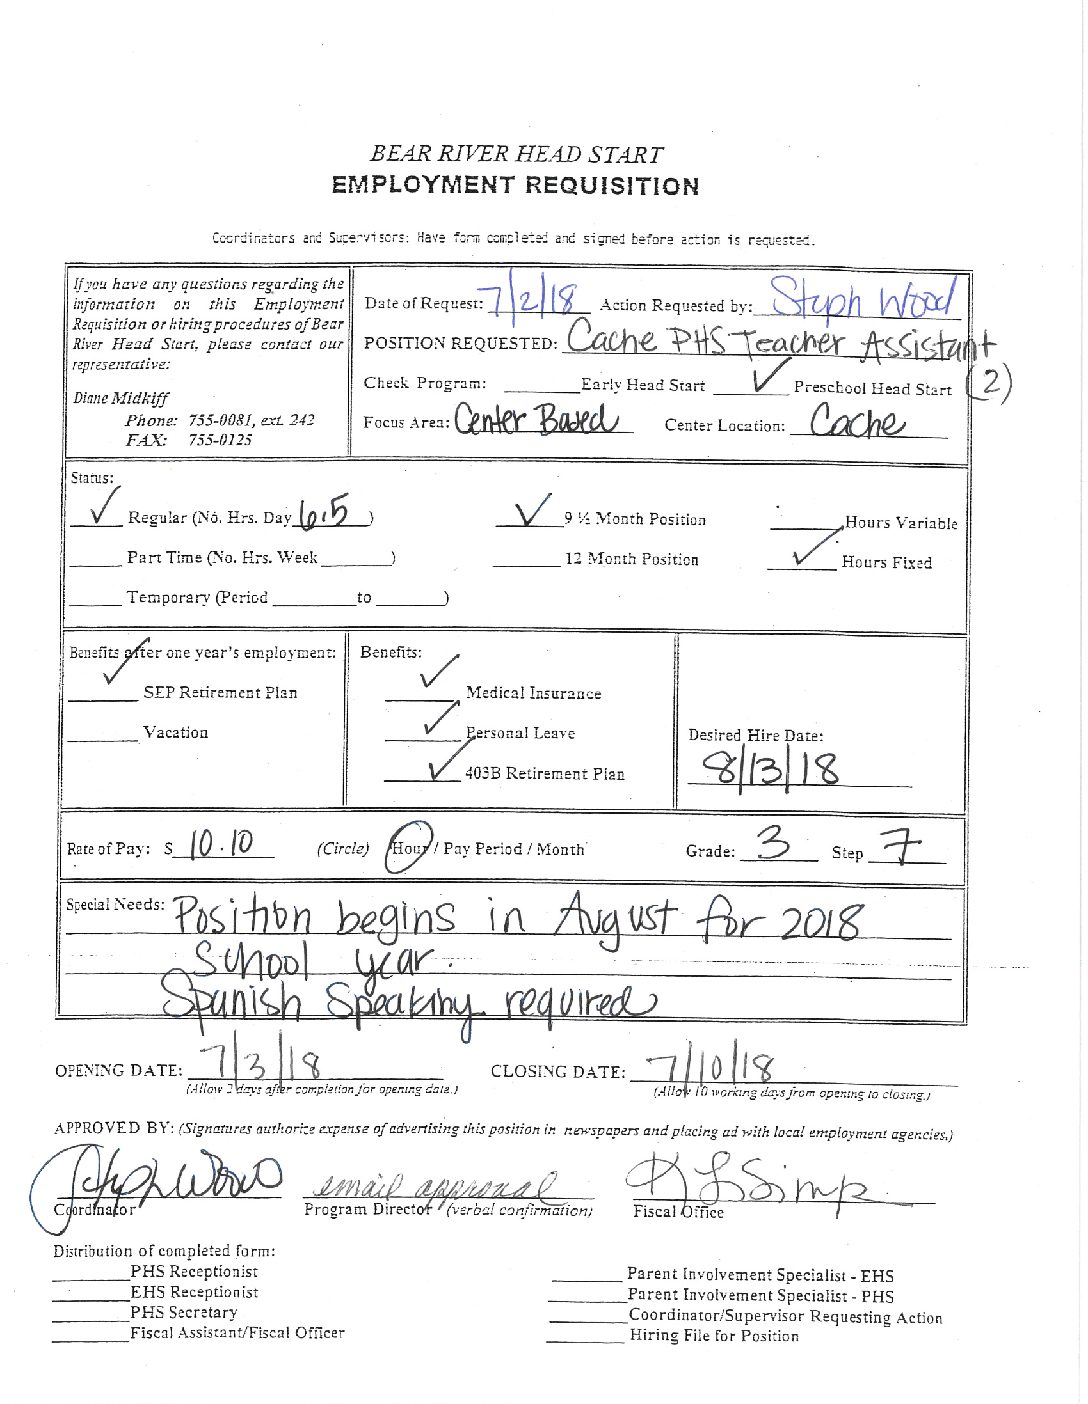 BEAR RIVER HEAD START
EMPLOYMENT REQUISITION
Coordinators and Supervisors: Have form completed and signed before action is requested.
If you have any questions regarding the
information on this Employment
Requisition or hiring procedures of Bear
River Head Start, please contact our
representative:
Diane Midkiff
Phone: 755-0081, ext. 242
FAX: 755-0125
Date of Request: 7/2/18 Action Requested by: Steph Wood
POSITION REQUESTED: Cache PHS Teacher Assistant
(2)
Check Program: ______ Early Head Start ✓ Preschool Head Start
Focus Area: Center Based Center Location: Cache
Status:
✓ Regular (No. Hrs. Day 6.5 ) ✓ 9 ½ Month Position ______ Hours Variable
______ Part Time (No. Hrs. Week ______ ) ______ 12 Month Position ✓ Hours Fixed
______ Temporary (Period ______ to ______ )
Benefits after one year's employment:
✓ SEP Retirement Plan
______ Vacation
Benefits:
✓ Medical Insurance
✓ Personal Leave
✓ 403B Retirement Plan
Desired Hire Date:
8/13/18
Rate of Pay: $ 10.10 (Circle) Hour / Pay Period / Month Grade: 3 Step 7
Special Needs: Position begins in August for 2018
School year.
Spanish Speaking required
OPENING DATE: 7/3/18 CLOSING DATE: 7/10/18
(Allow 3 days after completion for opening date.) (Allow 10 working days from opening to closing.)
APPROVED BY: (Signatures authorize expense of advertising this position in newspapers and placing ad with local employment agencies.)
Steph Wood email approval K L Simp
Coordinator Program Director (verbal confirmation) Fiscal Office
Distribution of completed form:
______ PHS Receptionist
______ EHS Receptionist
______ PHS Secretary
______ Fiscal Assistant/Fiscal Officer
______ Parent Involvement Specialist - EHS
______ Parent Involvement Specialist - PHS
______ Coordinator/Supervisor Requesting Action
______ Hiring File for Position